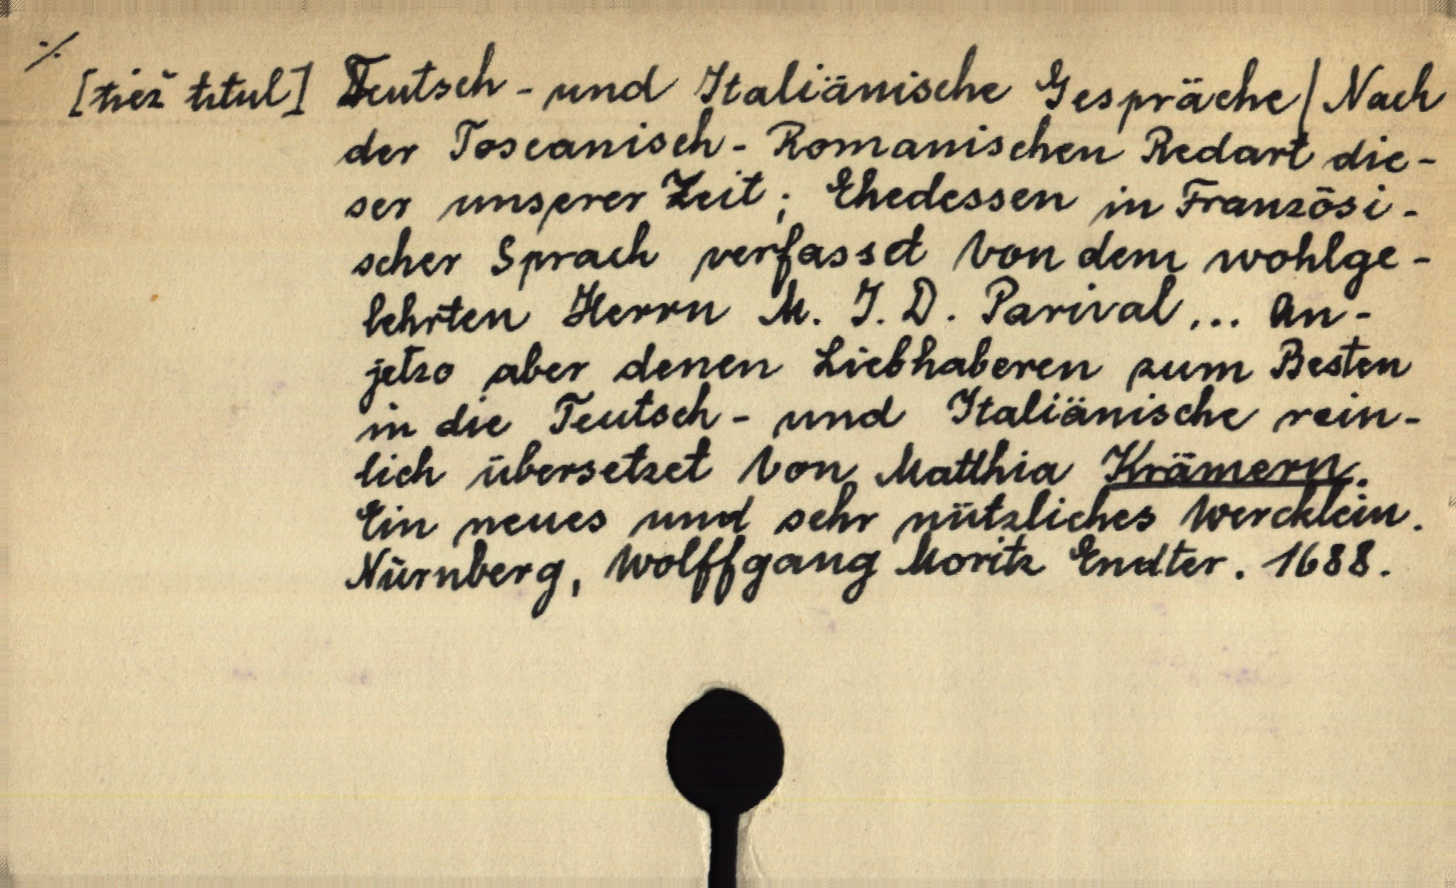 ./.
[tiež titul] Teutsch - und Italiänische Gespräche / Nach
der Toscanisch - Romanischen Redart die-
ser unserer Zeit; Ehedessen in Französi-
scher Sprach verfasset von dem wohlge-
lehrten Herrn M. J. D. Parival ... An-
jetzo aber denen Liebhaberen zum Besten
in die Teutsch - und Italiänische rein-
lich übersetzet von Matthia Krämern.
Ein neues und sehr nützliches Wercklein.
Nürnberg, Wolffgang Moritz Endter. 1688.